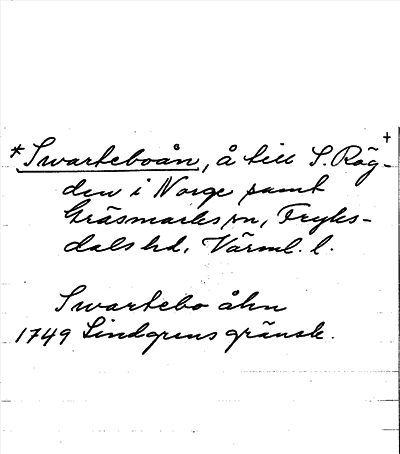 *Swarteboån, å till S. Røg- +
den i Norge samt
Gräsmarks sn, Fryks-
dals hd, Värml. l.
Swartebo åhn
1749 Lindgrens gränsk.